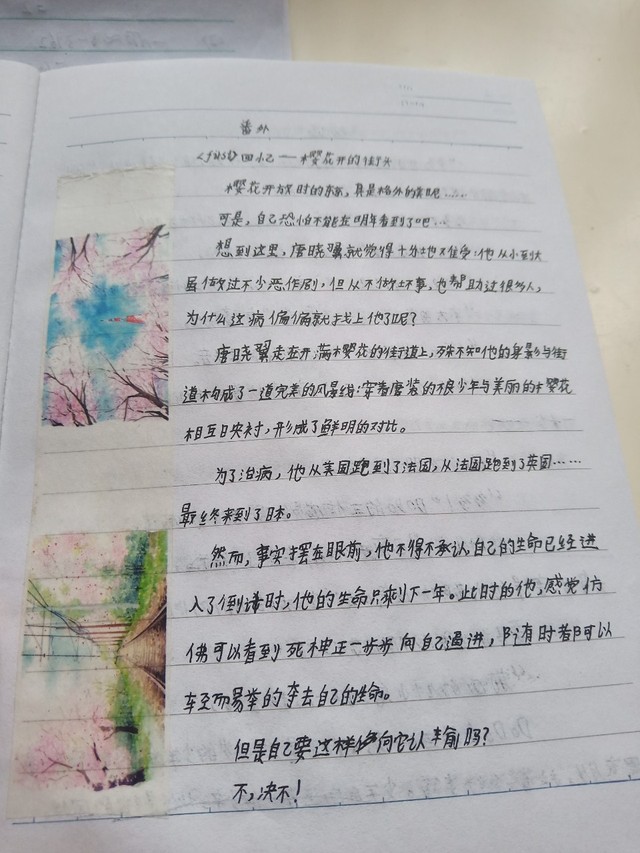 番外
<first>回忆——樱花开的街头
樱花开放时的东京,真是格外的美呢……
可是,自己恐怕不能在明年看到了吧…
想到这里,唐晓翼就觉得十分地不住受:他从小到大
虽做过不少恶作剧,但从不做坏事,也帮助过很多人,
为什么这病偏偏就找上他了呢?
唐晓翼走在开满樱花的街道上,殊不知他的身影与街
道构成了一道完美的风景线:穿着唐装的不良少年与美丽的樱花
相互映衬,形成了鲜明的对比。
为了治病,他从美国跑到了法国,从法国跑到了英国……
最终来到了日本。
然而,事实摆在眼前,他不得不承认自己的生命已经进
入了倒计时,他的生命只剩下一年。此时的他,感觉仿
佛可以看到死神正一步步向自己逼进,随时都可以
轻而易举的夺去自己的生命。
但是自己要这样向它认输吗?
不,决不!